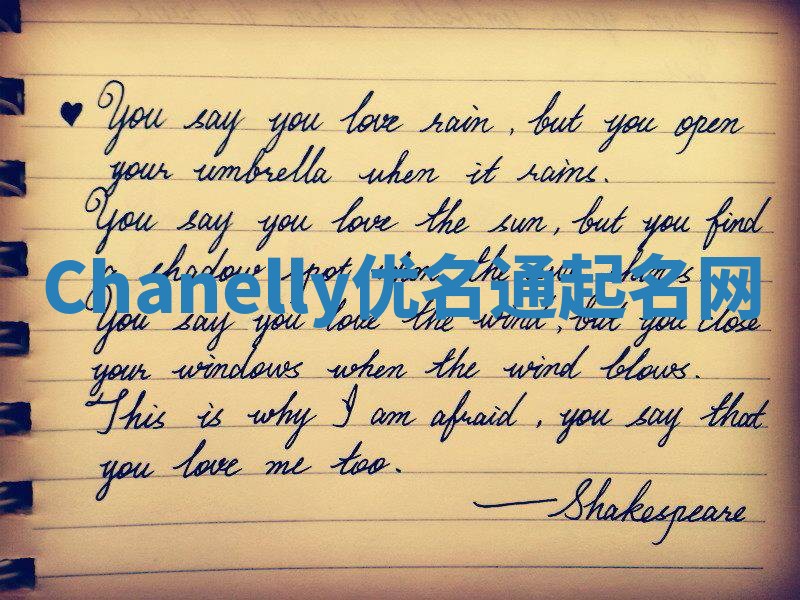 ♥ You say you love rain, but you open
your umbrella when it rains.
You say you love the sun, but you find
a shadow spot when the sun shines
Chanelly优名通起名网
You say you love the wind, but you close
your windows when the wind blows.
This is why I am afraid, you say that
you love me too.
—Shakespeare